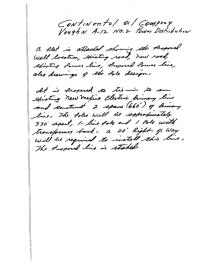 Continental Oil Company
Vaughn A-12 No. 2 Power Distribution
A plat is attached showing the proposed
well location, existing road, new road,
existing power line, proposed power line,
also drawings of the pole design.
It is proposed to tie-in to an
existing New Mexico Electric primary line
and construct 2 spans (660') of primary
line. The poles will be approximately
330' apart, 1 - line pole and 1 pole with
transformer bank. A 20' Right of Way
will be required to install this line.
The proposed line is staked.